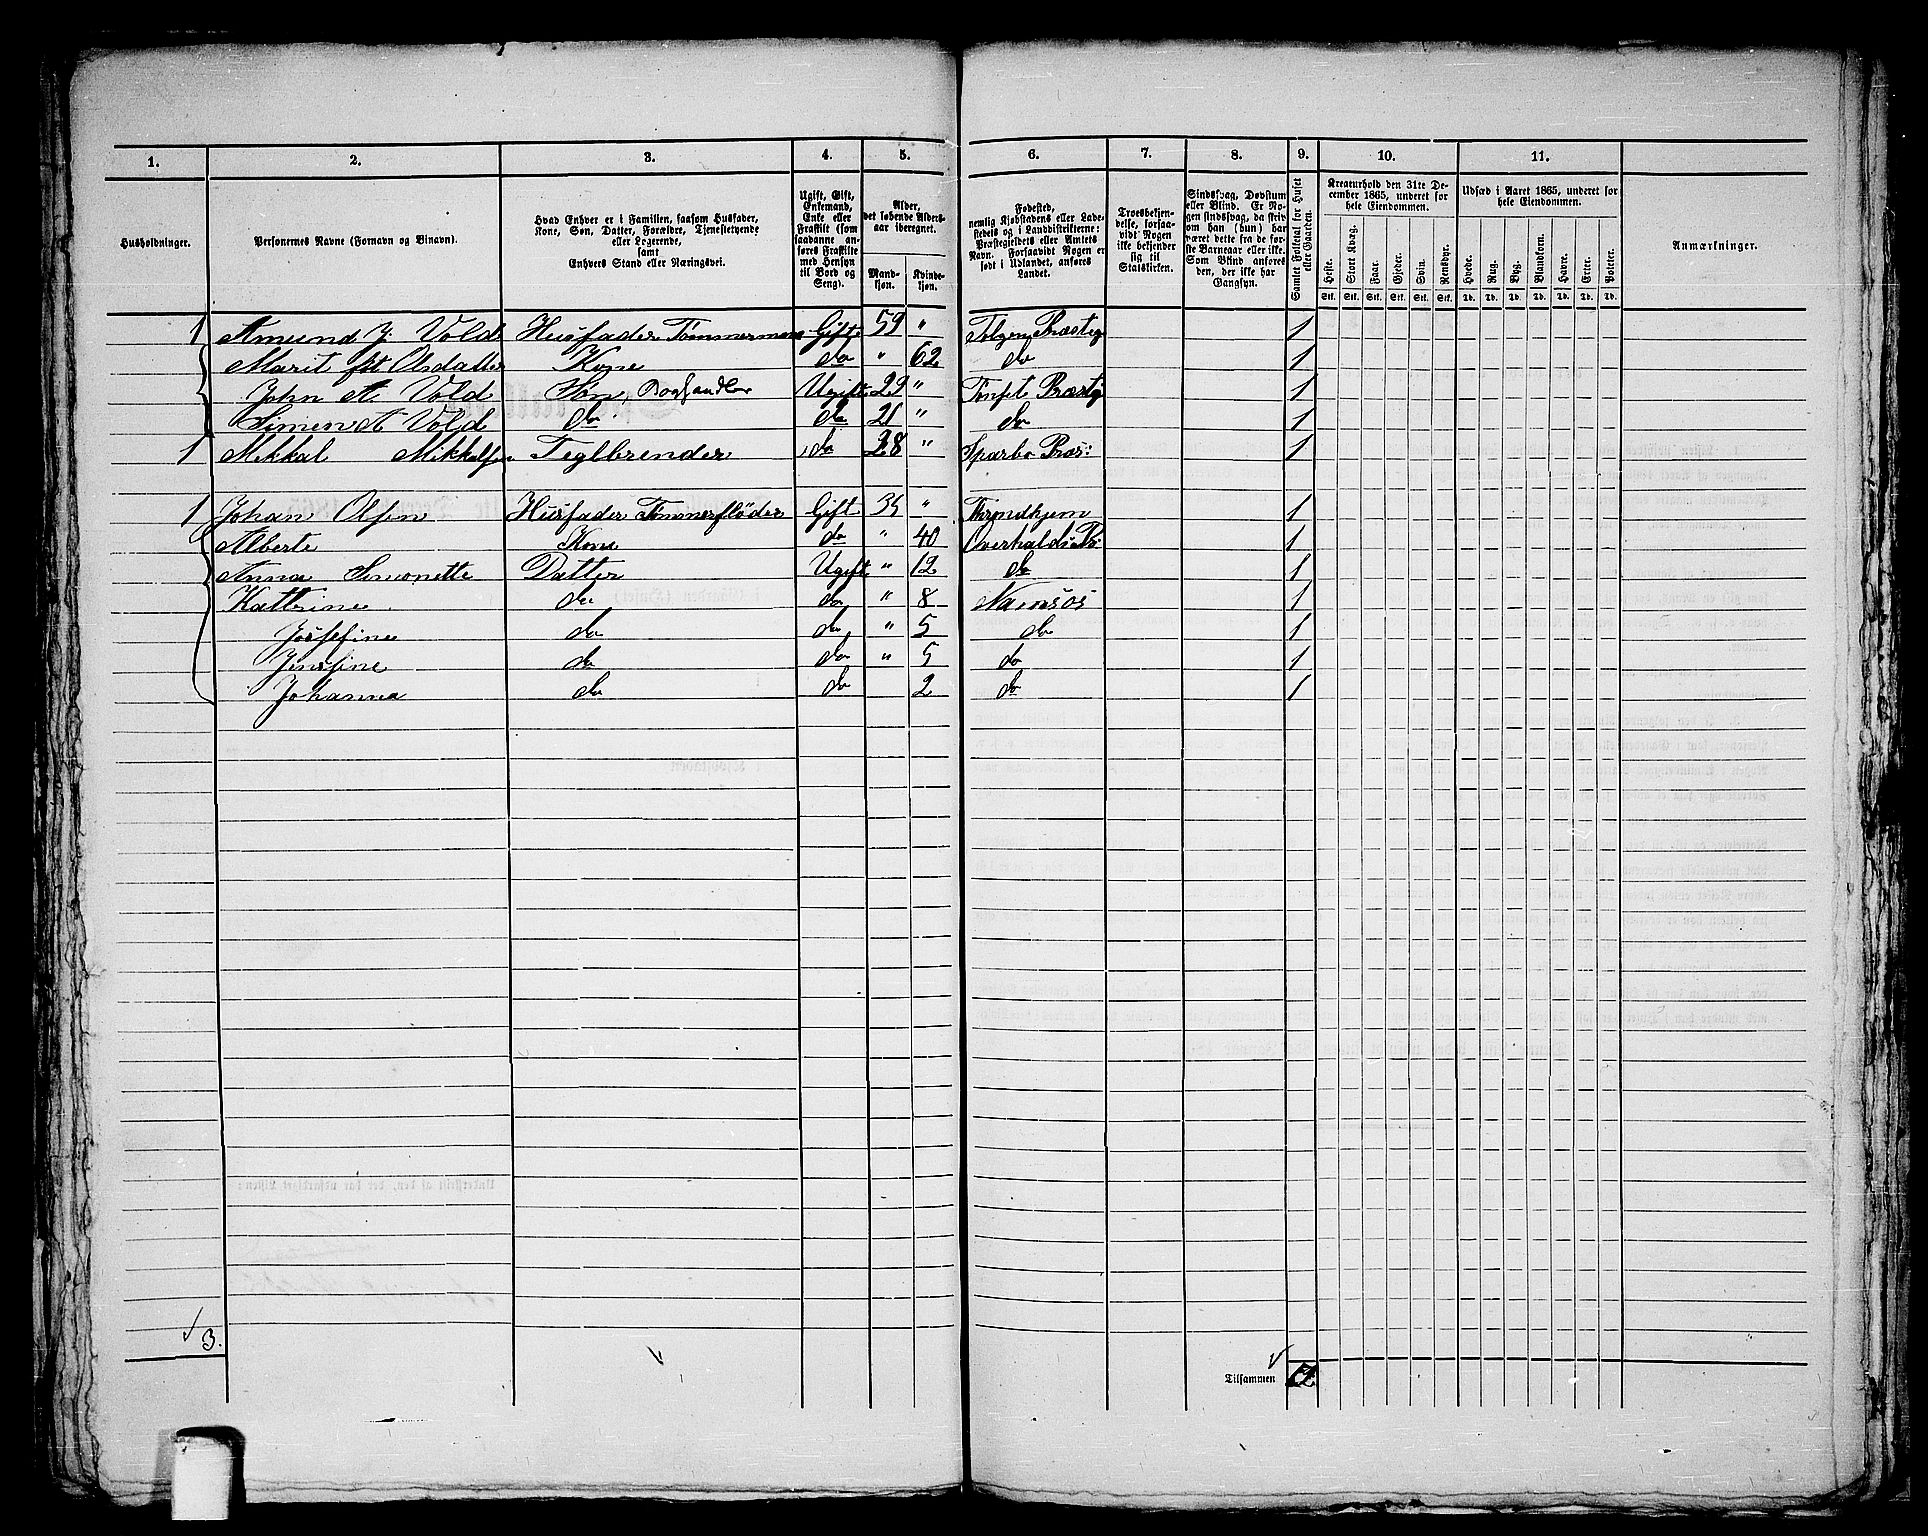 1. 2. 3. 4. 5. 6. 7. 8. 9. 10. 11.
Husholdninger.
Personernes Navne (Fornavn og Binavn).
Hvad Enhver er i Familien, saasom Husfader,
Kone, Søn, Datter, Forældre, Tjenestetyende
eller Logerende,
samt
Enhvers Stand eller Næringsvei.
Ugift, Gift,
Enkemand,
Enke eller
Fraskilt (som
saadanne an-
føres Fraskilte
med Hensyn
til Bord og
Seng).
Alder,
det løbende Alders-
aar iberegnet.
Mand-
kjøn.
Kvinde-
kjøn.
Fødested,
nemlig Kjøbstadens eller Lade-
stedets og i Landdistrikterne:
Præstegjeldets eller Amtets
Navn. Forsaavidt Nogen er
født i Udlandet, anføres
Landet.
Troesbekjen-
delse, forsaa-
vidt Nogen
ikke bekjender
sig til
Statskirken.
Sindssvag, Døvstum
eller Blind. Er No-
gen sindssvag, da skriv
om han (hun) har
været dette fra de før-
ste Barneaar eller ikke.
Som Blind anføres
den, der ikke har
Gangsyn.
Samlet Folketal for Huset
eller Gaarden.
Kreaturhold den 31te De-
cember 1865, underet for
hele Eiendommen.
Heste. Stort Kvæg. Faar. Gjeder. Svin. Rensdyr.
Stk. Stk. Stk. Stk. Stk. Stk.
Udsæd i Aaret 1865, underet for
hele Eiendommen.
Hvede. Rug. Byg. Blandkorn. Havre. Erter. Poteter.
Td. Td. Td. Td. Td. Td. Td.
Anmærkninger.
1 Amund J. Vold Husfader Tømmermand Gift 59 " Tolgen Præsteg 1
Marit Olsdatter Kone do " 62 do 1
John A Vold Søn Boghandler Ugift 29 " Tønset Præstg 1
Simen A Vold do do 21 " do 1
1 Mikkal Mikkelsen Teglbrender do 28 " Sparbo Præs: 1
1 Johan Olsen Husfader Tømmerfløder Gift 35 " Throndhjem 1
Alberte Kone do " 40 Overhalds Pr: 1
Anna Simonette Datter Ugift " 12 do 1
Kattrine do do " 8 Namsos 1
Josefine do do " 5 do 1
Jensine do do " 5 do 1
Johanna do do 2 do 1
3.
Tilsammen 12